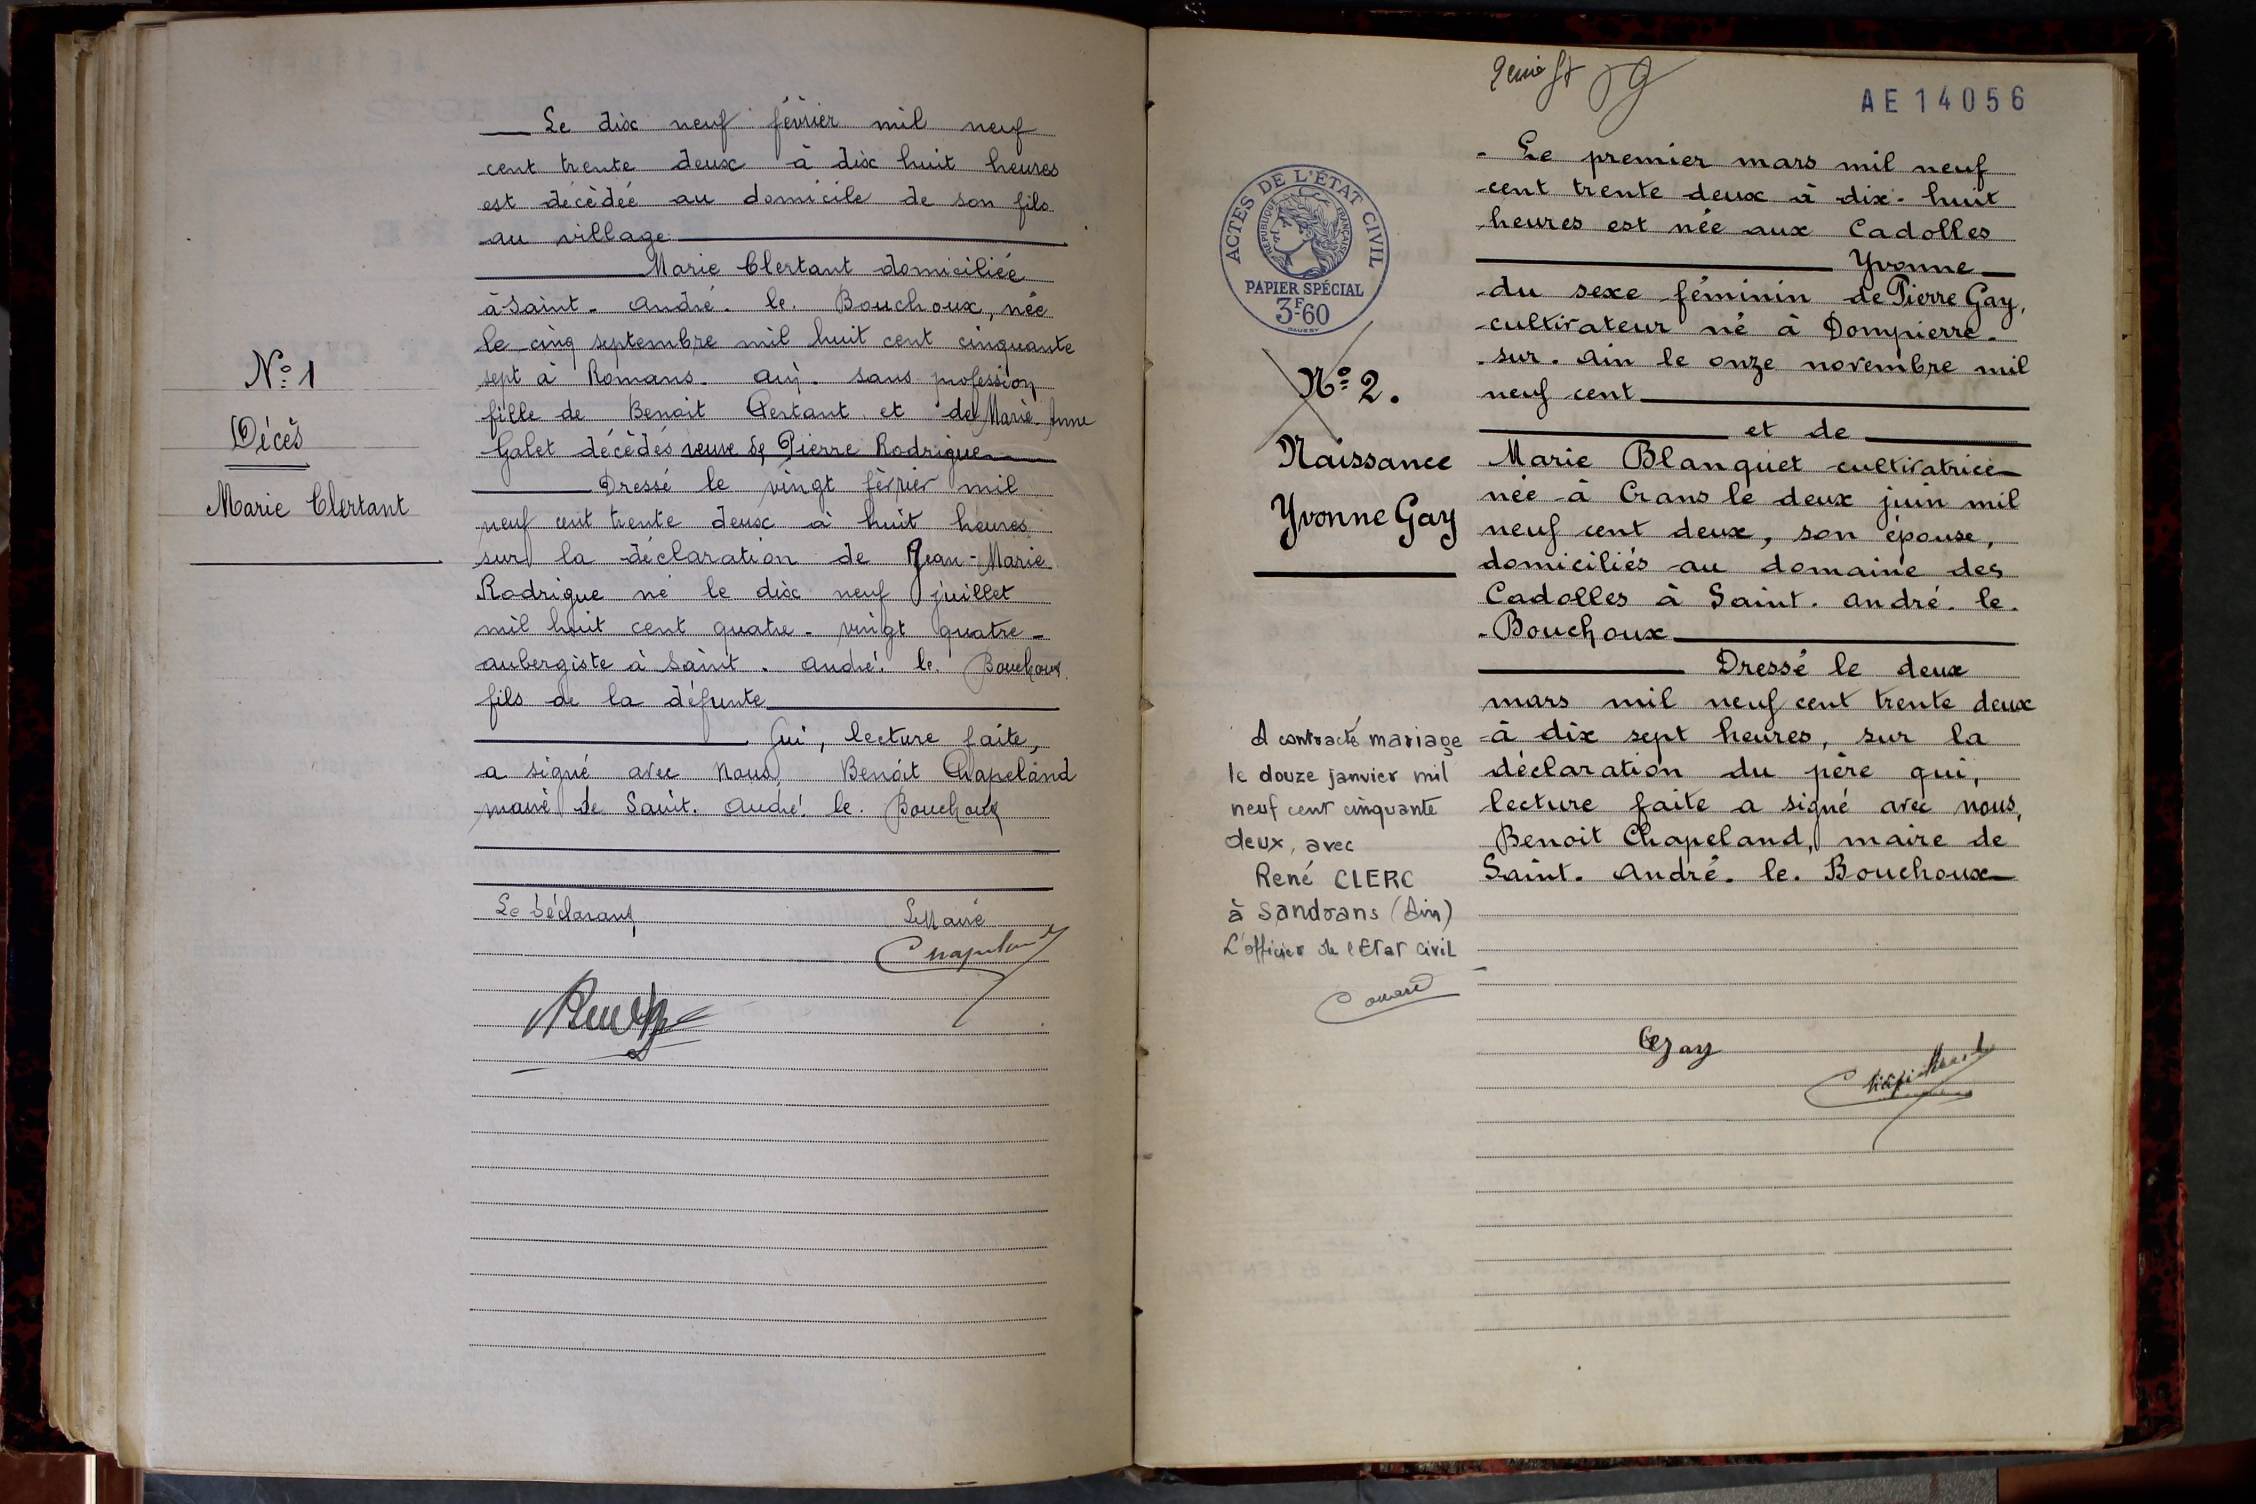 Le dix neuf février mil neuf
cent trente deux à dix huit heures
est décédée au domicile de son fils
au village
Marie Clertant domiciliée
à Saint-André-le-Bouchoux, née
le cinq septembre mil huit cent cinquante
sept à Romans. Ain. sans profession
fille de Benoit Clertant et de Marie-Anne
Galet décédés veuve de Pierre Rodrigue
Dressé le vingt février mil
neuf cent trente deux à huit heures
sur la déclaration de Jean-Marie
Rodrigue né le dix neuf juillet
mil huit cent quatre-vingt quatre
aubergiste à Saint-André-le-Bouchoux
fils de la défunte
Qui, lecture faite,
a signé avec Nous Benoit Chapeland
maire de Saint-André-le-Bouchoux
Le Déclarant
Le Maire
Chapeland
N° 1
Décès
Marie Clertant
AE 14056
ACTES DE L'ÉTAT CIVIL
RÉPUBLIQUE FRANÇAISE
PAPIER SPÉCIAL
3F60
N° 2.
Naissance
Yvonne Gay
A contracté mariage
le douze janvier mil
neuf cent cinquante
deux, avec
René CLERC
à Sandrans (Ain)
L'officier de l'Etat Civil
Le premier mars mil neuf
cent trente deux à dix-huit
heures est née aux Cadolles
Yvonne
du sexe féminin de Pierre Gay,
cultivateur né à Dompierre-
sur-Ain le onze novembre mil
neuf cent
et de
Marie Blanquet cultivatrice
née à Crans le deux juin mil
neuf cent deux, son épouse,
domiciliés au domaine des
Cadolles à Saint-André-le-
-Bouchoux
Dressé le deux
mars mil neuf cent trente deux
à dix sept heures, sur la
déclaration du père qui,
lecture faite a signé avec nous,
Benoit Chapeland, maire de
Saint-André-le-Bouchoux
Gay
Chapeland